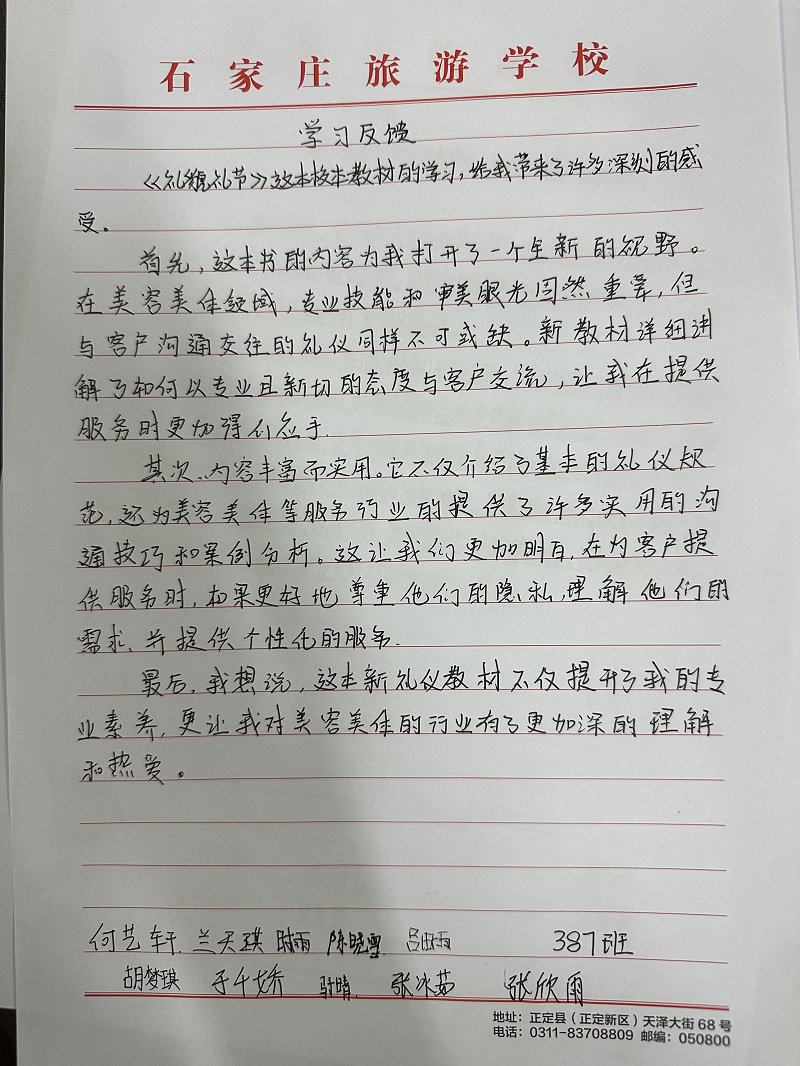 石家庄旅游学校
学习反馈
《礼貌礼节》这本校本教材的学习，给我带来了许多深刻的感
受。
首先，这本书的内容为我打开了一个全新的视野。
在美容美体领域，专业技能和审美眼光固然重要，但
与客户沟通交往的礼仪同样不可或缺。新教材详细讲
解了如何以专业且新切的态度与客户交流，让我在提供
服务时更加得心应手.
其次，内容丰富而实用。它不仅介绍了基本的礼仪规
范，还为美容美体等服务行业的提供了许多实用的沟
通技巧和案例分析。这让我们更加明白，在为客户提
供服务时，如果更好地尊重他们的隐私，理解他们的
需求、并提供个性化的服务.
最后，我想说，这本新礼仪教材不仅提升了我的专
业素养，更让我对美容美体的行业有了更加深的理解
和热爱。
何艺轩 兰天琪 时雨 陈晓雪 387班
胡梦琪 于千娇 张冰茹 张欣雨
地址：正定县（正定新区）天泽大街68号
电话：0311-83708809 邮编：050800